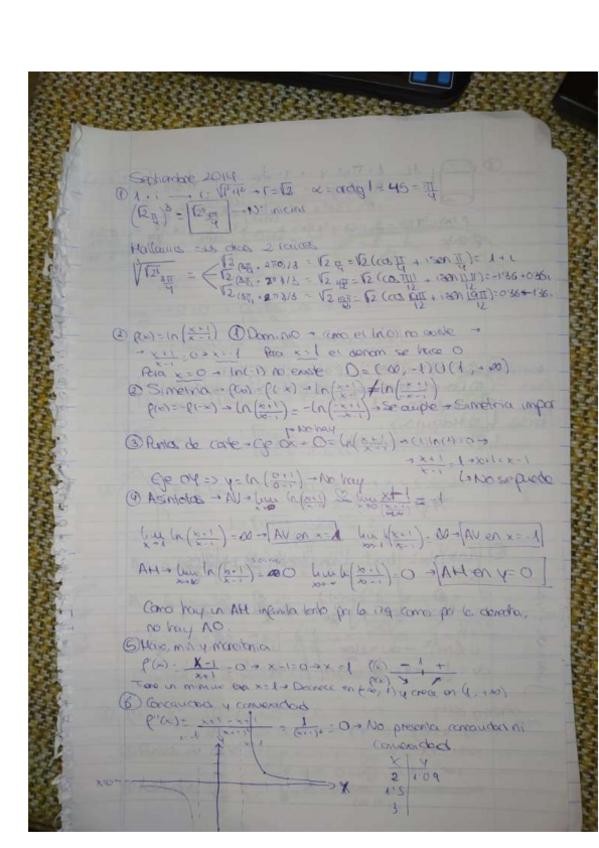 Septiembre 2014
① 1+i → r=√1²+1² → r=√2 α=arctg 1=45=π/4
(√2 π/4)³ = √2³ 3π/4 → Nº inicial
Hallamos las otras 2 raíces
∛√2³ 3π/4 = √2 = √2 π/4 = √2 (cos π/4 + i sen π/4) = 1+i
= √2 (cos 11π/12 + i sen 11π/12) = -1'36+0'36i
= √2 (cos 19π/12 + i sen 19π/12) = 0'36-1'36i
② f(x)=ln(x+1/x-1) ① Dominio → como el ln(0) no existe →
→ x+1/x-1=0 → x=-1 Para x=1 el denom se hace 0
Para x=0 → ln(-1) no existe D=(-∞,-1)U(1,+∞)
② Simetría → f(x)=f(-x) → ln(x+1/x-1)≠ln(-x+1/-x-1)
f(x)=-f(-x) → ln(x+1/x-1)=-ln(-x+1/-x-1) → Se cumple → Simetría impar
→ No hay
③ Puntos de corte → Eje OX → 0=ln(x+1/x-1) → ln(1)=0 →
→ x+1/x-1=1 → x+1=x-1
Eje OY => y=ln(0+1/0-1) → No hay ↳ No se puede
④ Asíntotas → AV → lim ln(x+1/x-1)
lim x→1 ln(x+1/x-1)=∞ → AV en x=1 lim x→-1 ln(x+1/x-1)=∞ → AV en x=-1
AH → lim ln(x+1/x-1)=0 lim ln(x+1/x-1)=0 → AH en y=0
Como hay un AH infinita tanto por la izq como por la derecha,
no hay AO
⑤ Max, min y monotonía
f'(x)=x-1/x+1=0 → x-1=0 → x=1 - 1 +
Tiene un mínimo en x=1 → Decrece en (-∞,1) y crece en (1,+∞)
⑥ Concavidad y convexidad
f''(x)= =0 → No presenta concavidad ni
convexidad
x y
2 1'09
1'5
3
X